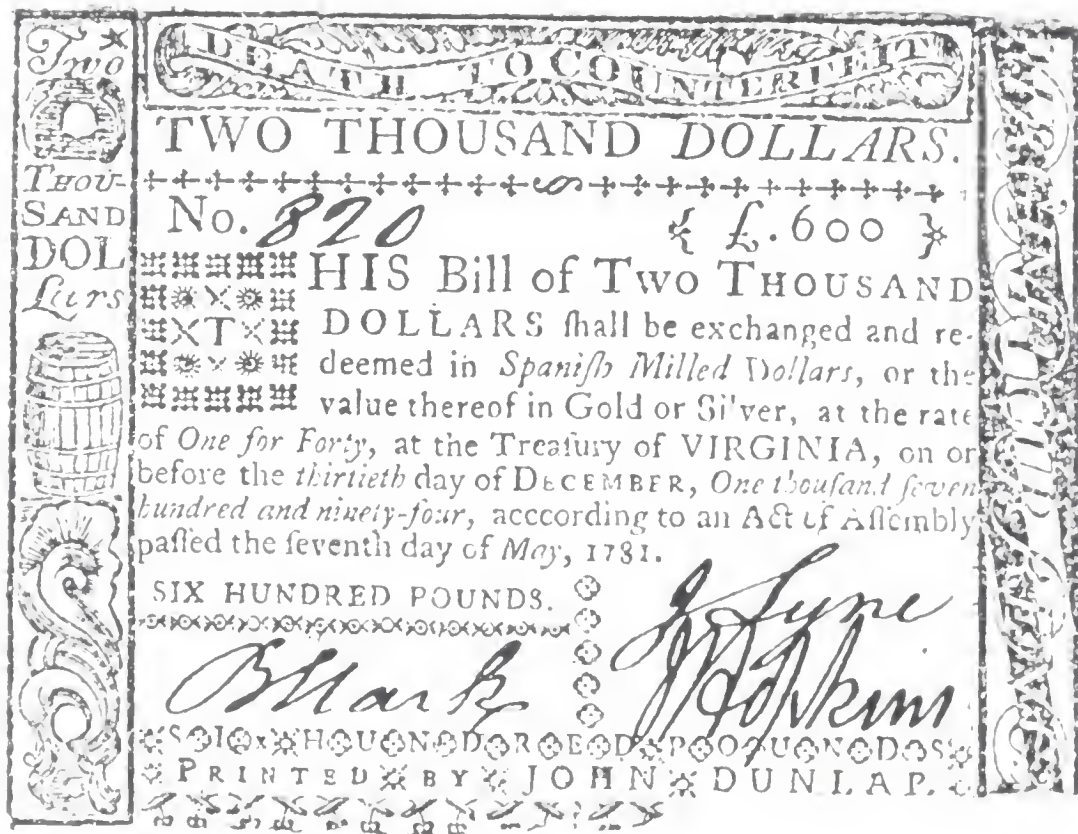 DEATH TO COUNTERFEIT
Two
THOU-
SAND
DOL
Lars
TWO THOUSAND DOLLARS.
No. 820 { £.600 }
THIS Bill of TWO THOUSAND
DOLLARS ſhall be exchanged and re-
deemed in Spaniſh Milled Dollars, or the
value thereof in Gold or Silver, at the rate
of One for Forty, at the Treaſury of VIRGINIA, on or
before the thirtieth day of DECEMBER, One thouſand ſeven
hundred and ninety-four, acccording to an Act of Aſſembly
paſſed the ſeventh day of May, 1781.
SIX HUNDRED POUNDS.
J Lyne
B Stark
J Hopkins
SIX HUNDRED POUNDS
PRINTED BY JOHN DUNLAP.